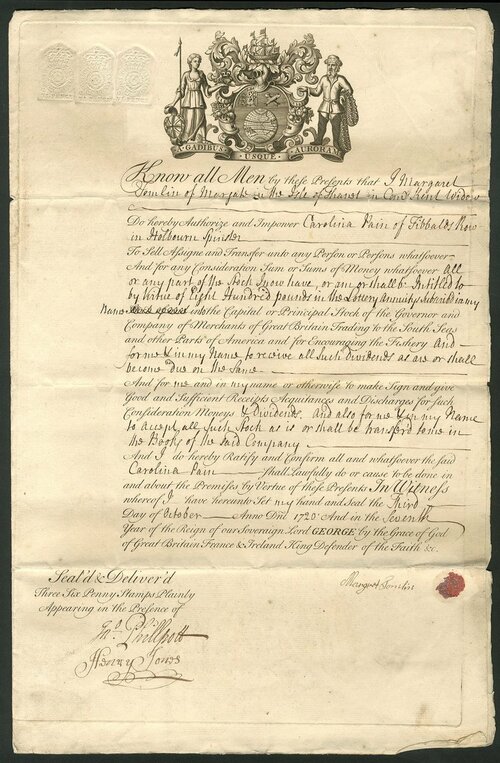 A GADIBUS USQUE AURORAM
Know all Men by these Presents that I Margaret
Tomlin of Margate in the Isle of Thanet in Com̄ Kent Widow
Do hereby Authorize and Impower Carolina Pain of Tibbalds Row
in Holbourn Spinster
To Sell Assigne and Transfer unto any Person or Persons whatsoever
And for any Consideration Sum or Sums of Money whatsoever All
or any part of the Stock I now have, or am or shall be Intitled to
by Virtue of Eight Hundred pounds in the Lottery Annuitys Subscribed in my
Name into the Capital or Principal Stock of the Governor and
Company of Merchants of Great Britain Trading to the South Seas
and other Parts of America and for Encouraging the Fishery And
for me & in my Name to receive all Such Dividends as are or shall
become due on the Same
And for me and in my name or otherwise to make Sign and give
Good and Sufficient Receipts Acquitances and Discharges for such
Consideration Moneys & Dividends. And also for me & in my Name
to Accept all Such Stock as is or shall be transferd to me in
the Books of the said Company
And I do hereby Ratify and Confirm all and whatsoever the said
Carolina Pain shall lawfully do or cause to be done in
and about the Premises by Virtue of these Presents In Witness
whereof I have hereunto Set my hand and Seal the Third
Day of October Anno Dni 1720 And in the Seventh
Year of the Reign of our Sovereign Lord GEORGE by the Grace of God
of Great Britain France & Ireland King Defender of the Faith &c.
Seal'd & Deliver'd
Three Six Penny Stamps Plainly
Appearing in the Presence of
Margret Tomlin
Jno. Phillpott
Henry Jones